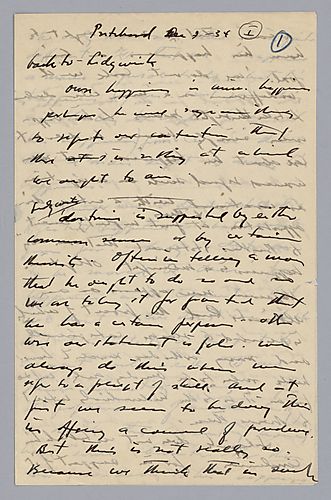 Prichard Dec 3-34 I 1
back to - Sidgwick
own happiness is univ. happiness
perhaps he
to refute our contention that
there is nothing at which
we ought to aim
doctrine is supported by either
common sense or by certain
theorists. Often in telling a man
that he ought to do so and so
we are taking it for granted that
he has a certain purpose other
wise our statement is false. we
always do this when we
refer to a piece of skill and at
first we seem to be doing this
in offering a counsel of prudence.
But this is not really so.
Because we think that as such